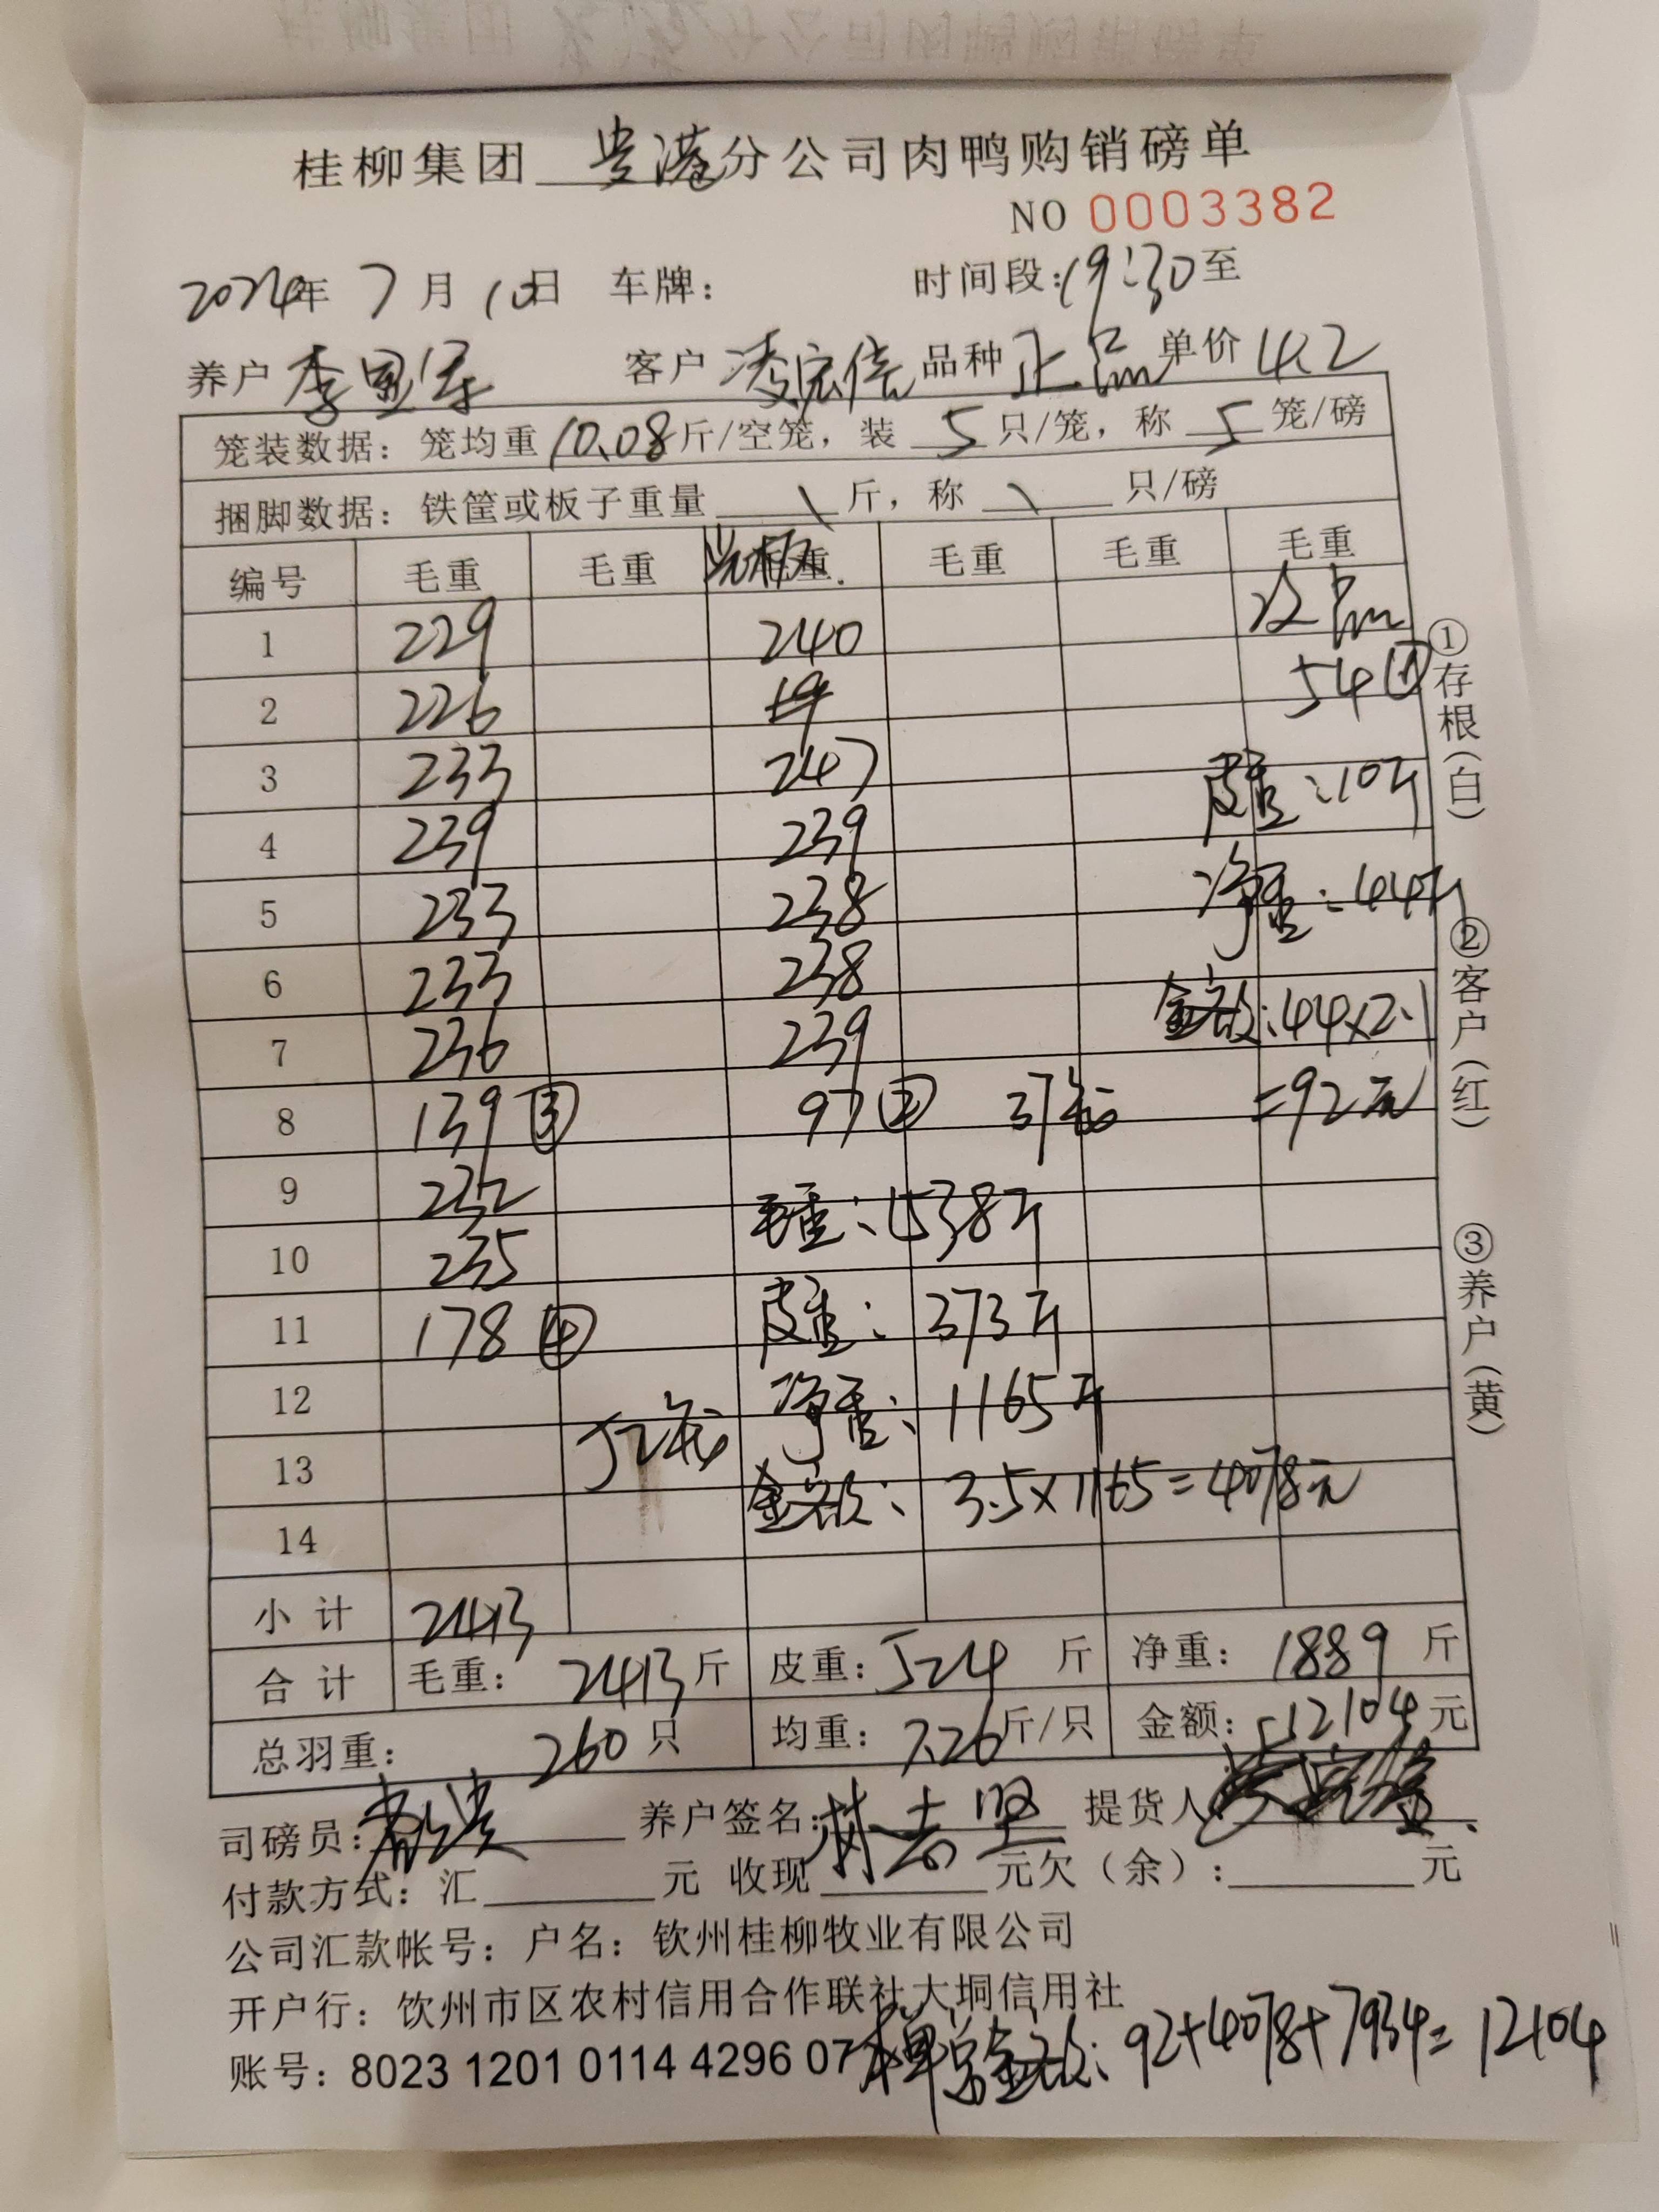 桂柳集团 贵港 分公司肉鸭购销磅单
NO 0003382
2024年 7月 10日 车牌： 时间段：19:30至
养户 李里军 客户 凌宏信 品种 正品 单价 4.2
笼装数据：笼均重 10.08 斤/空笼，装 5 只/笼，称 5 笼/磅
捆脚数据：铁筐或板子重量 \ 斤，称 \ 只/磅
编号 毛重 毛重 毛重 毛重 毛重 毛重
次品
1 229 240
2 226 54①
3 233 247 皮重：10斤
4 239 239
5 233 238 净重：44斤
6 233 238
7 236 239 金额：44×2.1
8 139③ 97② 37笼 =92元
9 232 毛重：1538斤
10 235
11 178④ 皮重：373斤
12 净重：1165斤
13 52笼
14 金额：3.5×1165=4078元
小计 2413
合计 毛重：2413斤 皮重：524斤 净重：1889斤
总羽重：260只 均重：7.26斤/只 金额：12104元
司磅员： 养户签名： 提货人：
付款方式：汇 元 收现 元欠（余）： 元
公司汇款帐号：户名：钦州桂柳牧业有限公司
开户行：钦州市区农村信用合作联社大垌信用社
账号：8023 1201 0114 4296 07 本单总金额：92+4078+7934=12104
①存根（白）
②客户（红）
③养户（黄）